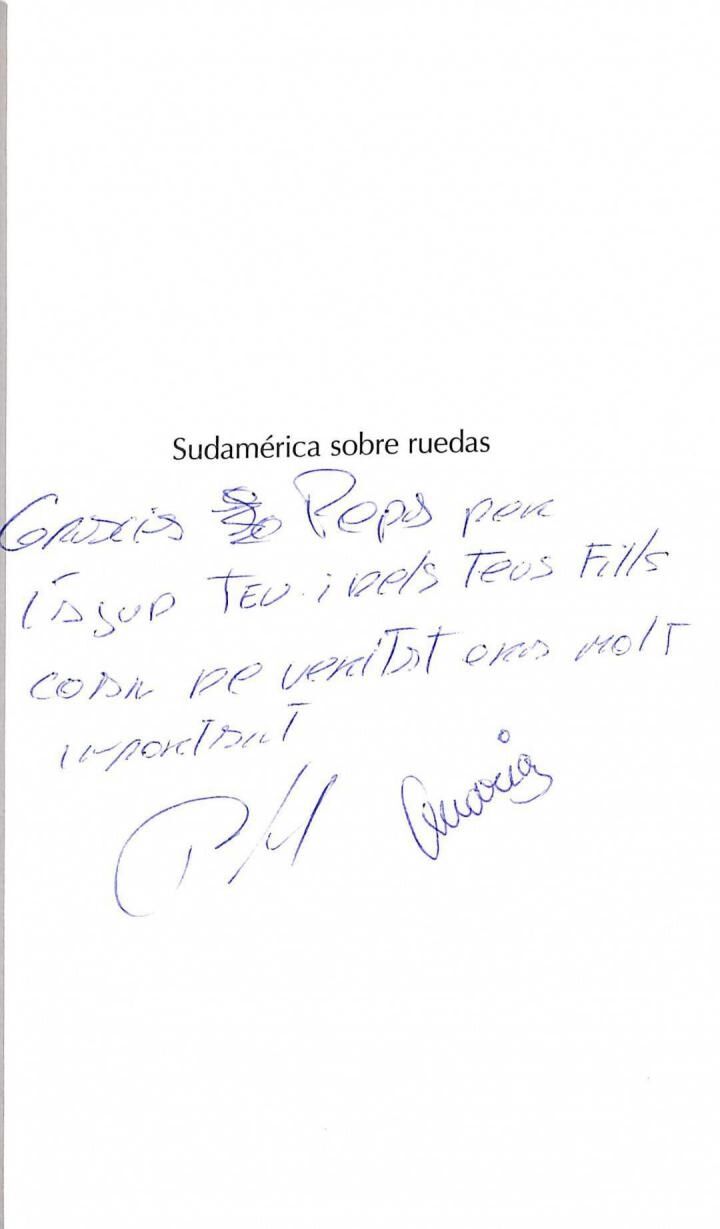 Sudamérica sobre ruedas
Gracias Pepa per
l'ajud Teu i dels Teus Fills
de veritat era molt
important
Maria